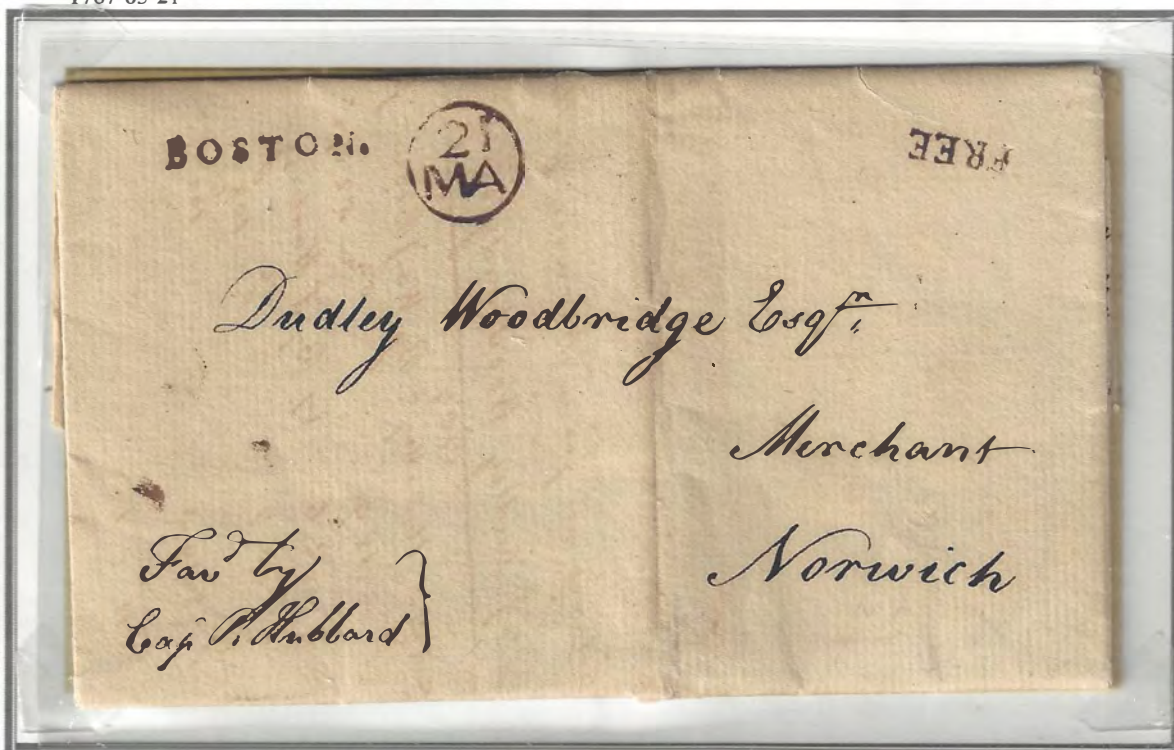 BOSTON. 21 MA FREE
Dudley Woodbridge Esqr.
Merchant
Norwich
Favd by
Cap Hubbard